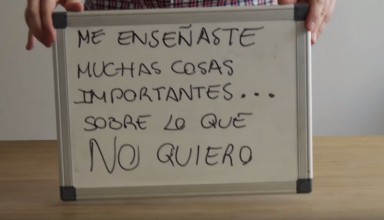 ME ENSEÑASTE
MUCHAS COSAS
IMPORTANTES...
SOBRE LO QUE
NO QUIERO